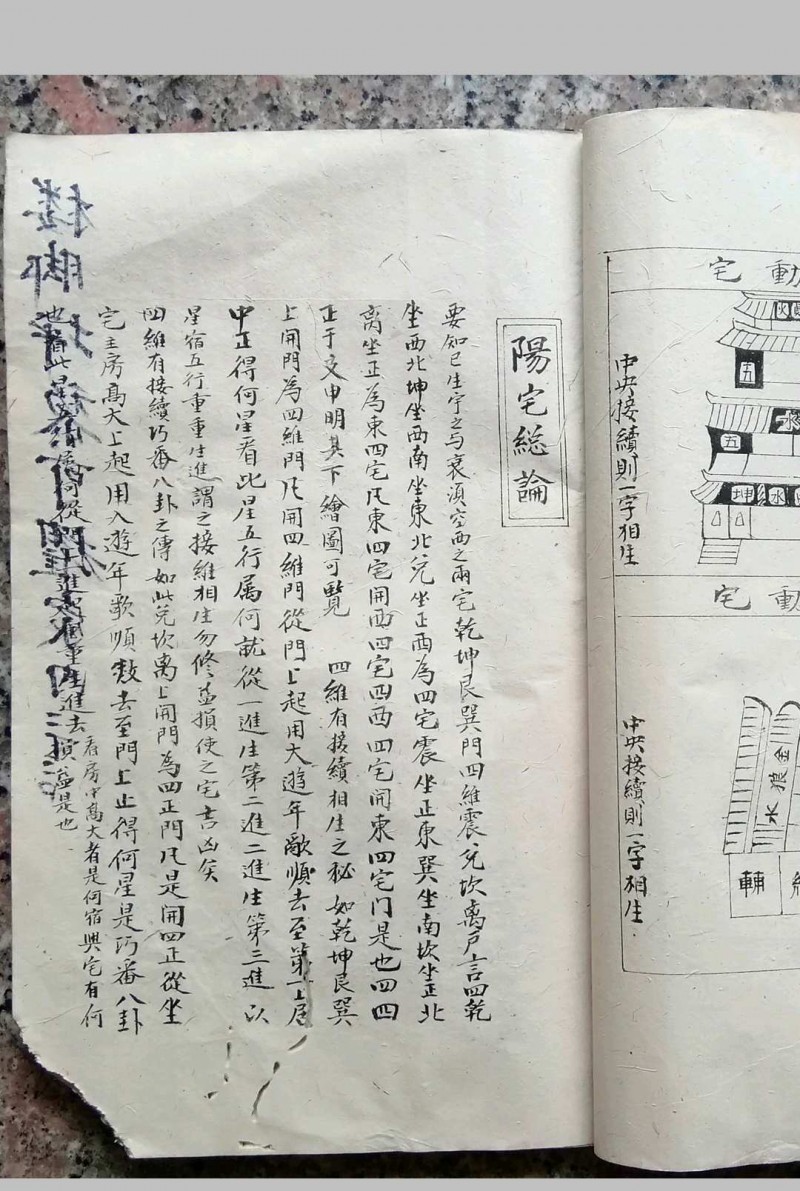 動宅
火
五
水
五
坤
水
中央接續則一字相生
動宅
金
木
輔
中央接續則一字相生
陽宅総論
要知已生宇之与衰須空西之兩宅乾坤艮巽門四維震兌坎离戶言四乾
坐西北坤坐西南坐東北兌坐正西為四宅震坐正東巽坐南坎坐正北
离坐正為東四宅凡東四宅開西四宅四西四宅開東四宅门是也四四
正于文申明其下繪圖可覽 四維有接續相生之秘如乾坤艮巽
上開門為四維門凡開四維門從門上起用大遊年歌順去至第一層
中正得何星看此星五行属何就從一進生第二進二進生第三進以
星宿五行重重生進謂之接維相生勿修益損使之宅吉凶矣
四維有接續巧番八卦之傳如此兌坎离上開門為四正門凡是開四正從坐
宅主房高大上起用入遊年歌順数去至門上止得何星是巧番八卦
看房中高大者是何宿與宅有何
進去損益是也